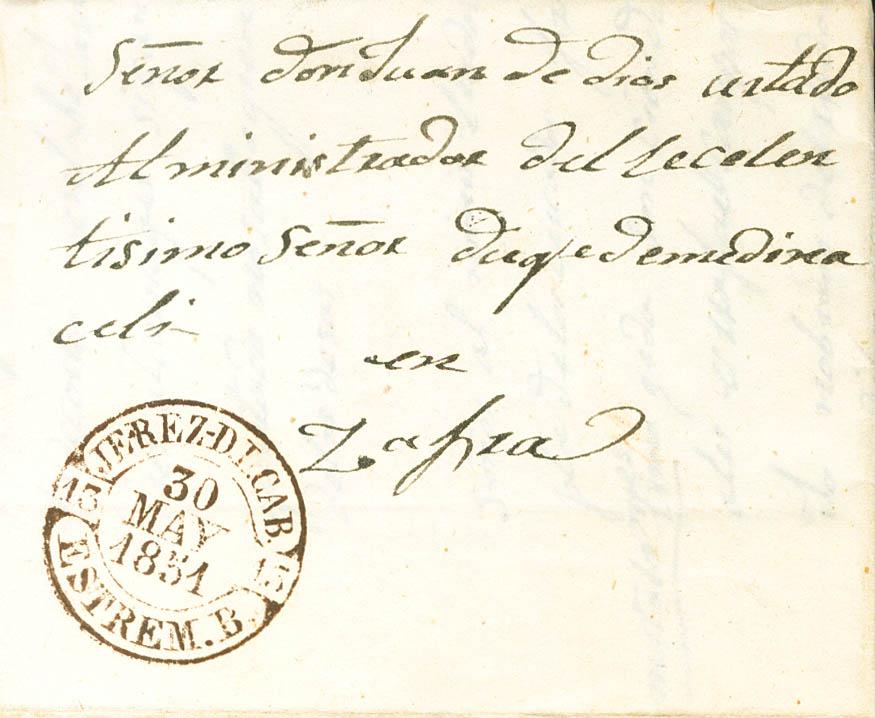 Señor don Juan de dios urtado
Alministrador del Secelen
tisimo Señor duqe de medina
celi
en
Zafra
JEREZ-D L CAB.
13 13
30
MAY
1851
ESTREM. B.